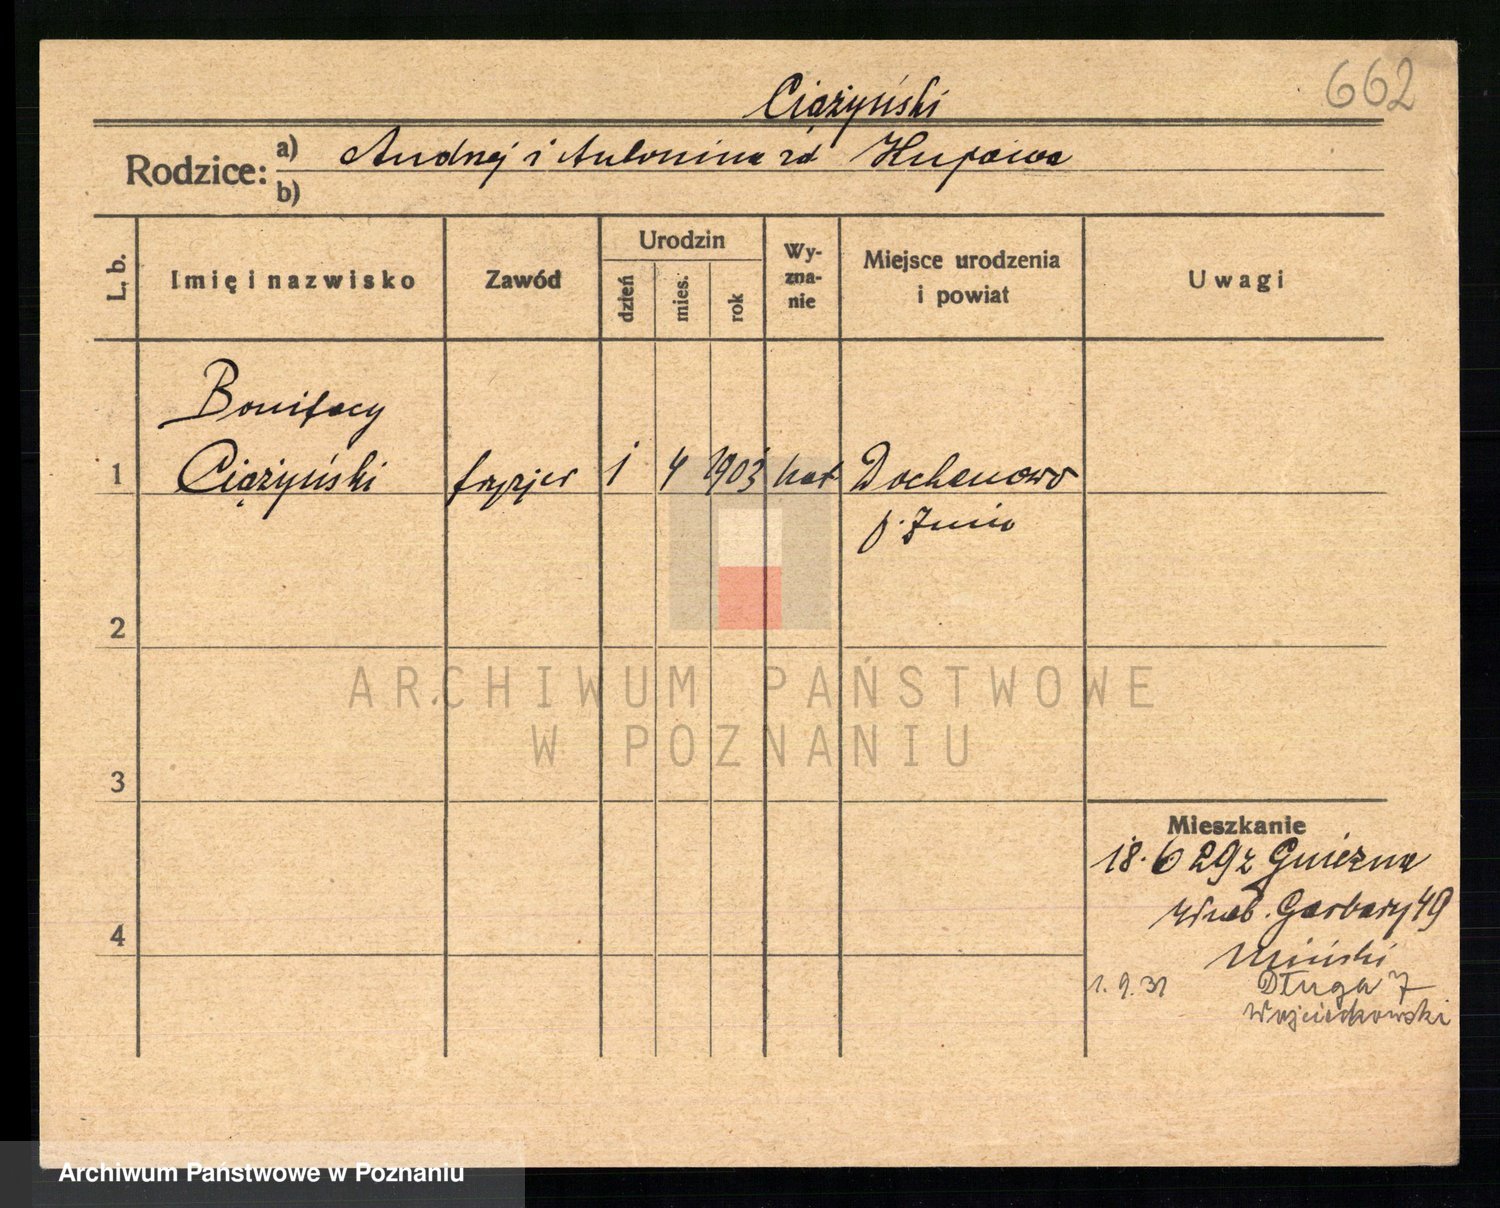 662
Ciążyński
Rodzice: a) Andrzej i Antonina zd
b)
L. b. Imię i nazwisko Zawód Urodzin dzień mies. rok Wyznanie Miejsce urodzenia i powiat Uwagi
Bonifacy
1 Ciążyński fryzjer 1 4 1903 kat Dochanowo
p. Żnin
2
3
4
Mieszkanie
18.6 29 z Gniezna
Garbary 49
Miński
1.9.31 Długa 7
Wojciechowski
ARCHIWUM PAŃSTWOWE
W POZNANIU
Archiwum Państwowe w Poznaniu